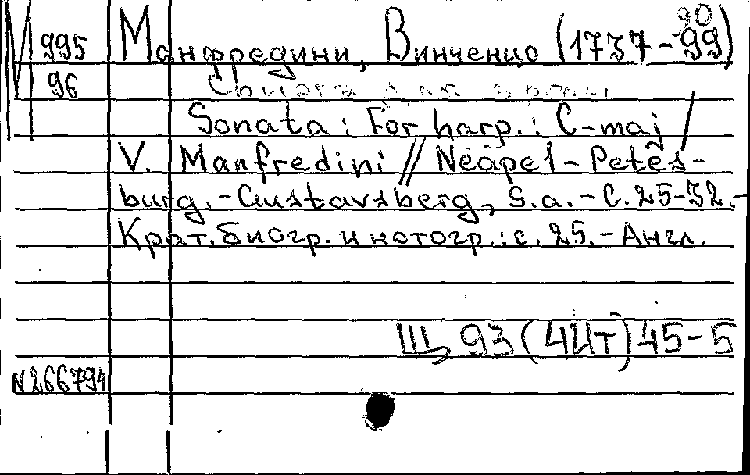 М 995 Манфредини, Винченцо (1737-99)
96
Sonata : For harp. : C-maj /
V. Manfredini // Neapel-Peters-
burg.-Gustavsberg, S.a.-С.25-32.-
Крат.биогр.и нотогр.:с.25.-Англ.
Щ 93(4Ит)45-5
N266794